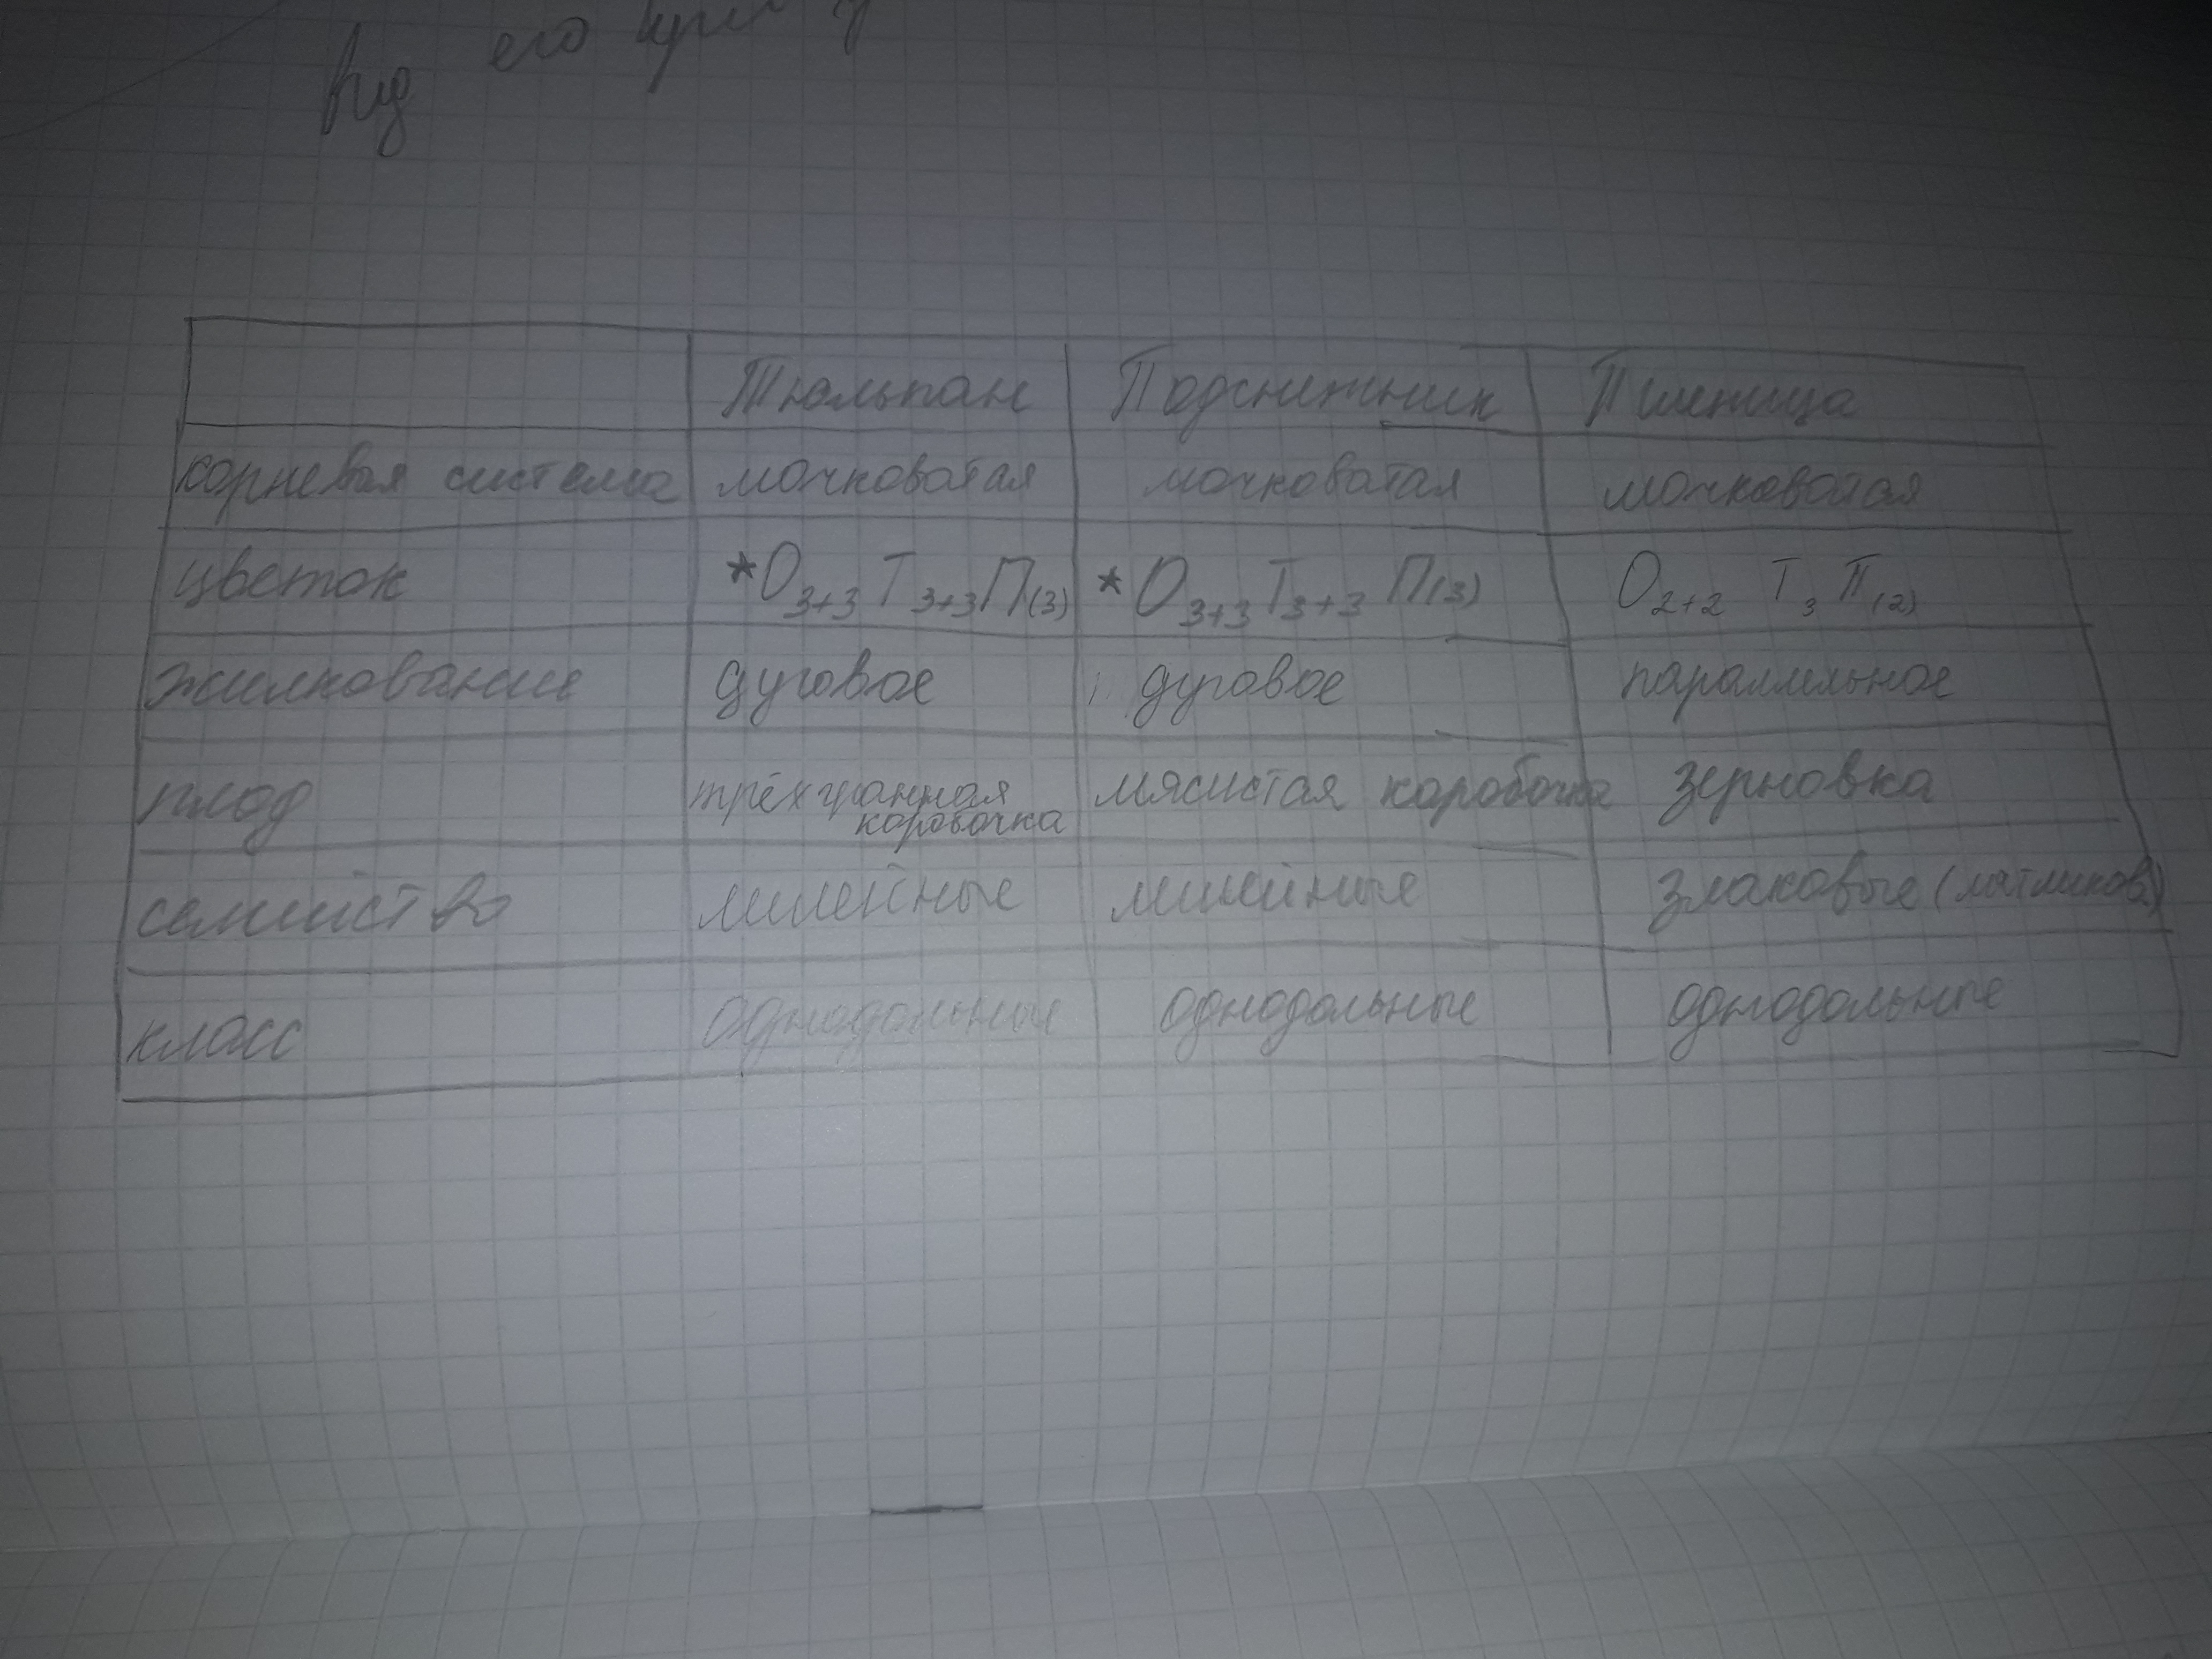 его
Тюльпан Подснежник Пшеница
корневая система мочковатая мочковатая мочковатая
цветок *О3+3 Т3+3 П(3) *О3+3 Т3+3 П(3) О2+2 Т3 П(2)
жилкование дуговое дуговое параллельное
плод трёхгранная коробочка мясистая коробочка зерновка
семейство лилейные лилейные злаковые (мятликов.)
класс однодольные однодольные однодольные